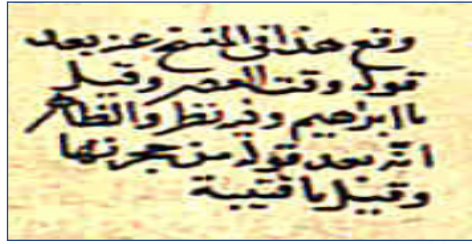 وقع هذا في المنسخ عز بعد
قوله وقت العصر وقيل
باابراهيم وفيه نظر والظاهر
انه بعد قوله من حجرتها
وقبل باقتيبة